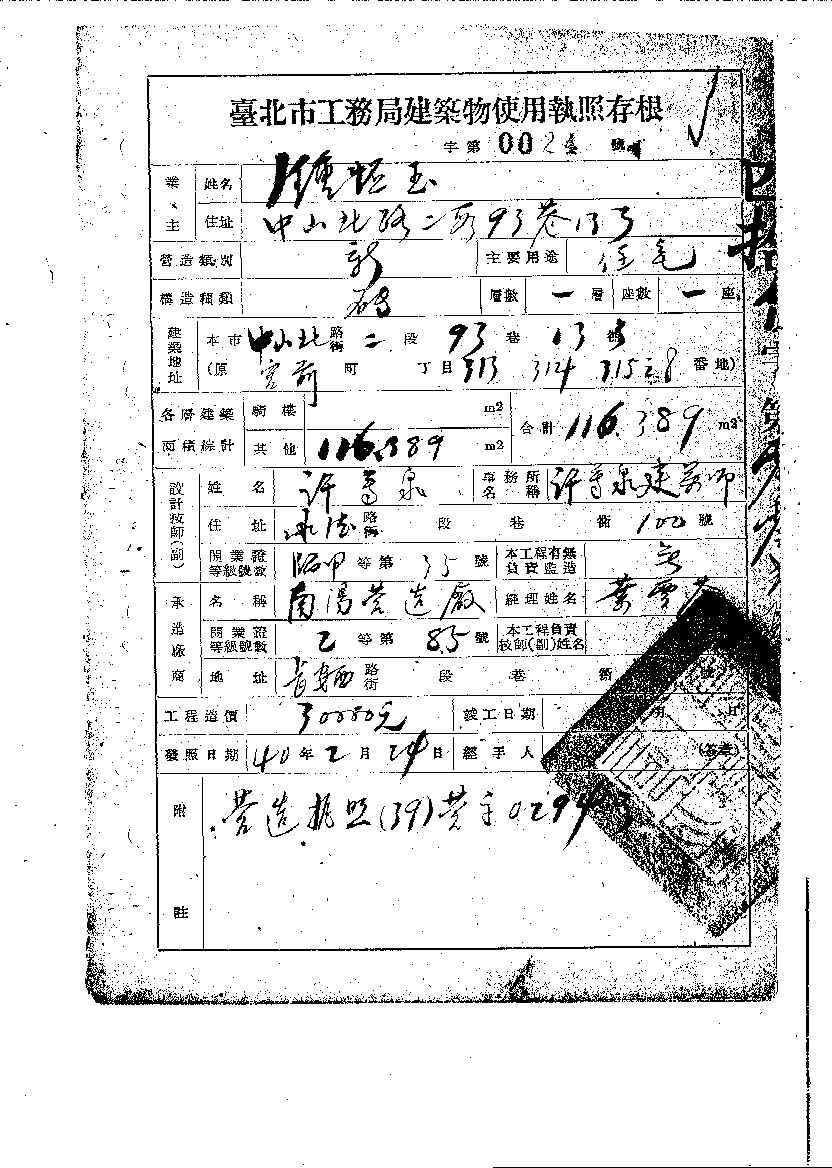 臺北市工務局建築物使用執照存根
字第 002 號
業主 姓名 鍾恒玉
住址 中山北路二段93巷13号
營造類別 新 主要用途 住宅
構造種類 磚 層數 一 層 座數 一 座
建築地址 本市 中山北 路街 二 段 93 巷 13 號
(原 宮前 町 丁目 313 314 315 番地)
各層建築面積總計 騎樓 m2 合計 116.389 m2
其他 116.389 m2
設計技師(副) 姓名 許 泉 事務所名稱 許 泉建築師
住址 路街 段 巷 衖 100 號
開業證等級號数 甲 等第 35 號 本工程有無負責監造 無
承造廠商 名稱 南陽營造廠 經理姓名 葉雲
開業證等級號數 乙 等第 85 號 本工程負責技師(副)姓名
地址 長安西 路街 段 巷 衖 號
工程造價 30000元 竣工日期 月 日
發照日期 40年2月24日 經手人 (簽章)
附註 營造执照(39)營字0294